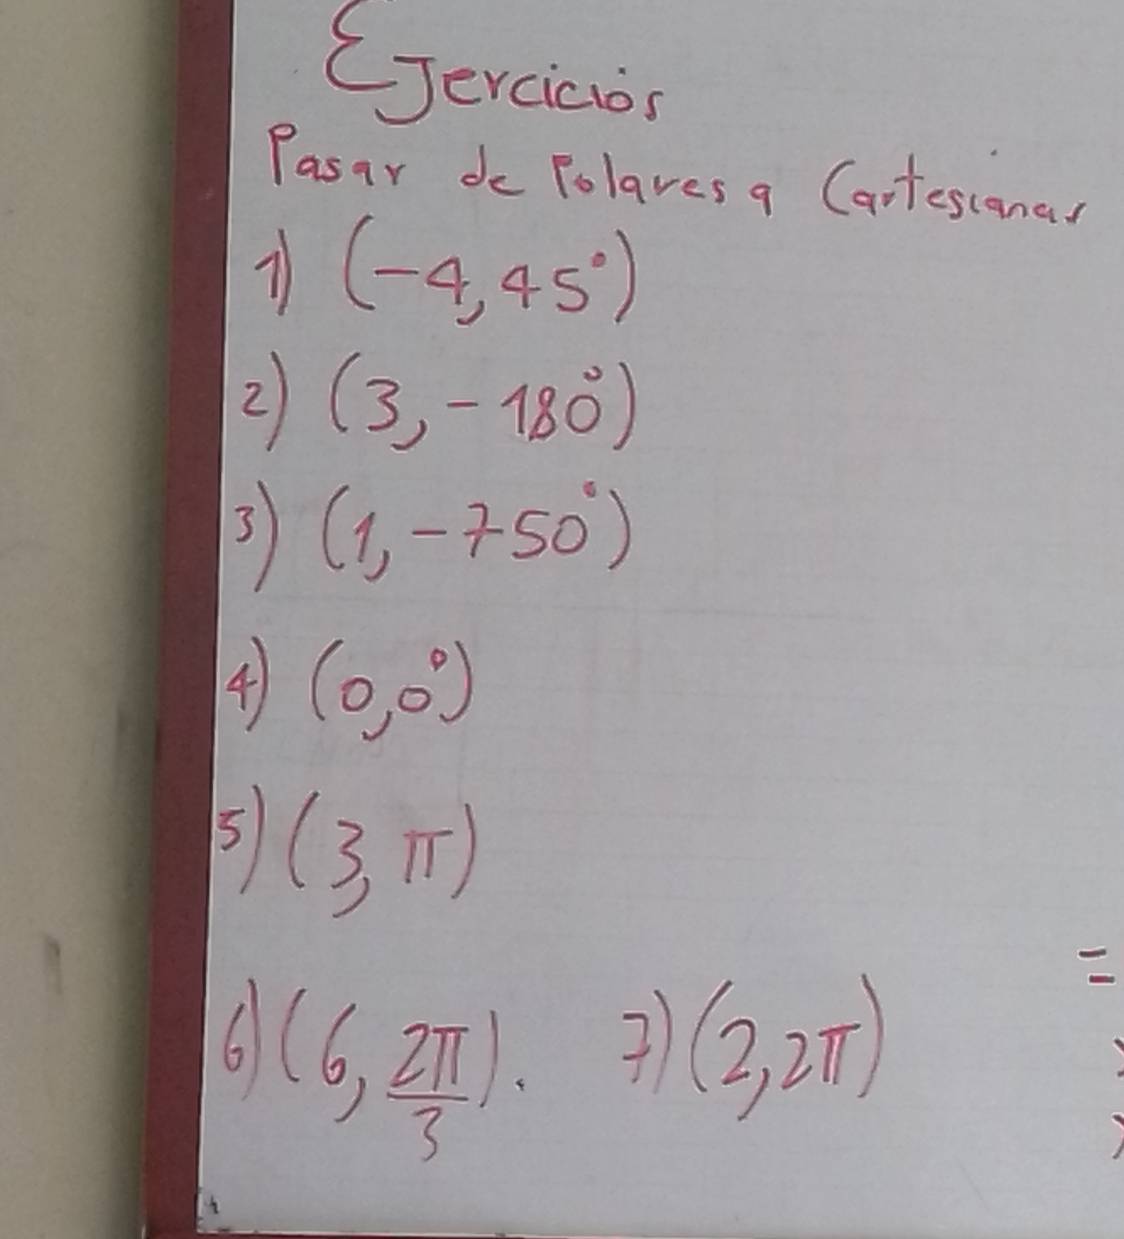 Ejercicios
Pasar de Polares a Cartesianas
1) (-4, 45°)
2) (3, -180°)
3) (1, -750°)
4) (0, 0°)
5) (3, π)
6) (6, 2π/3). 7) (2, 2π)
=